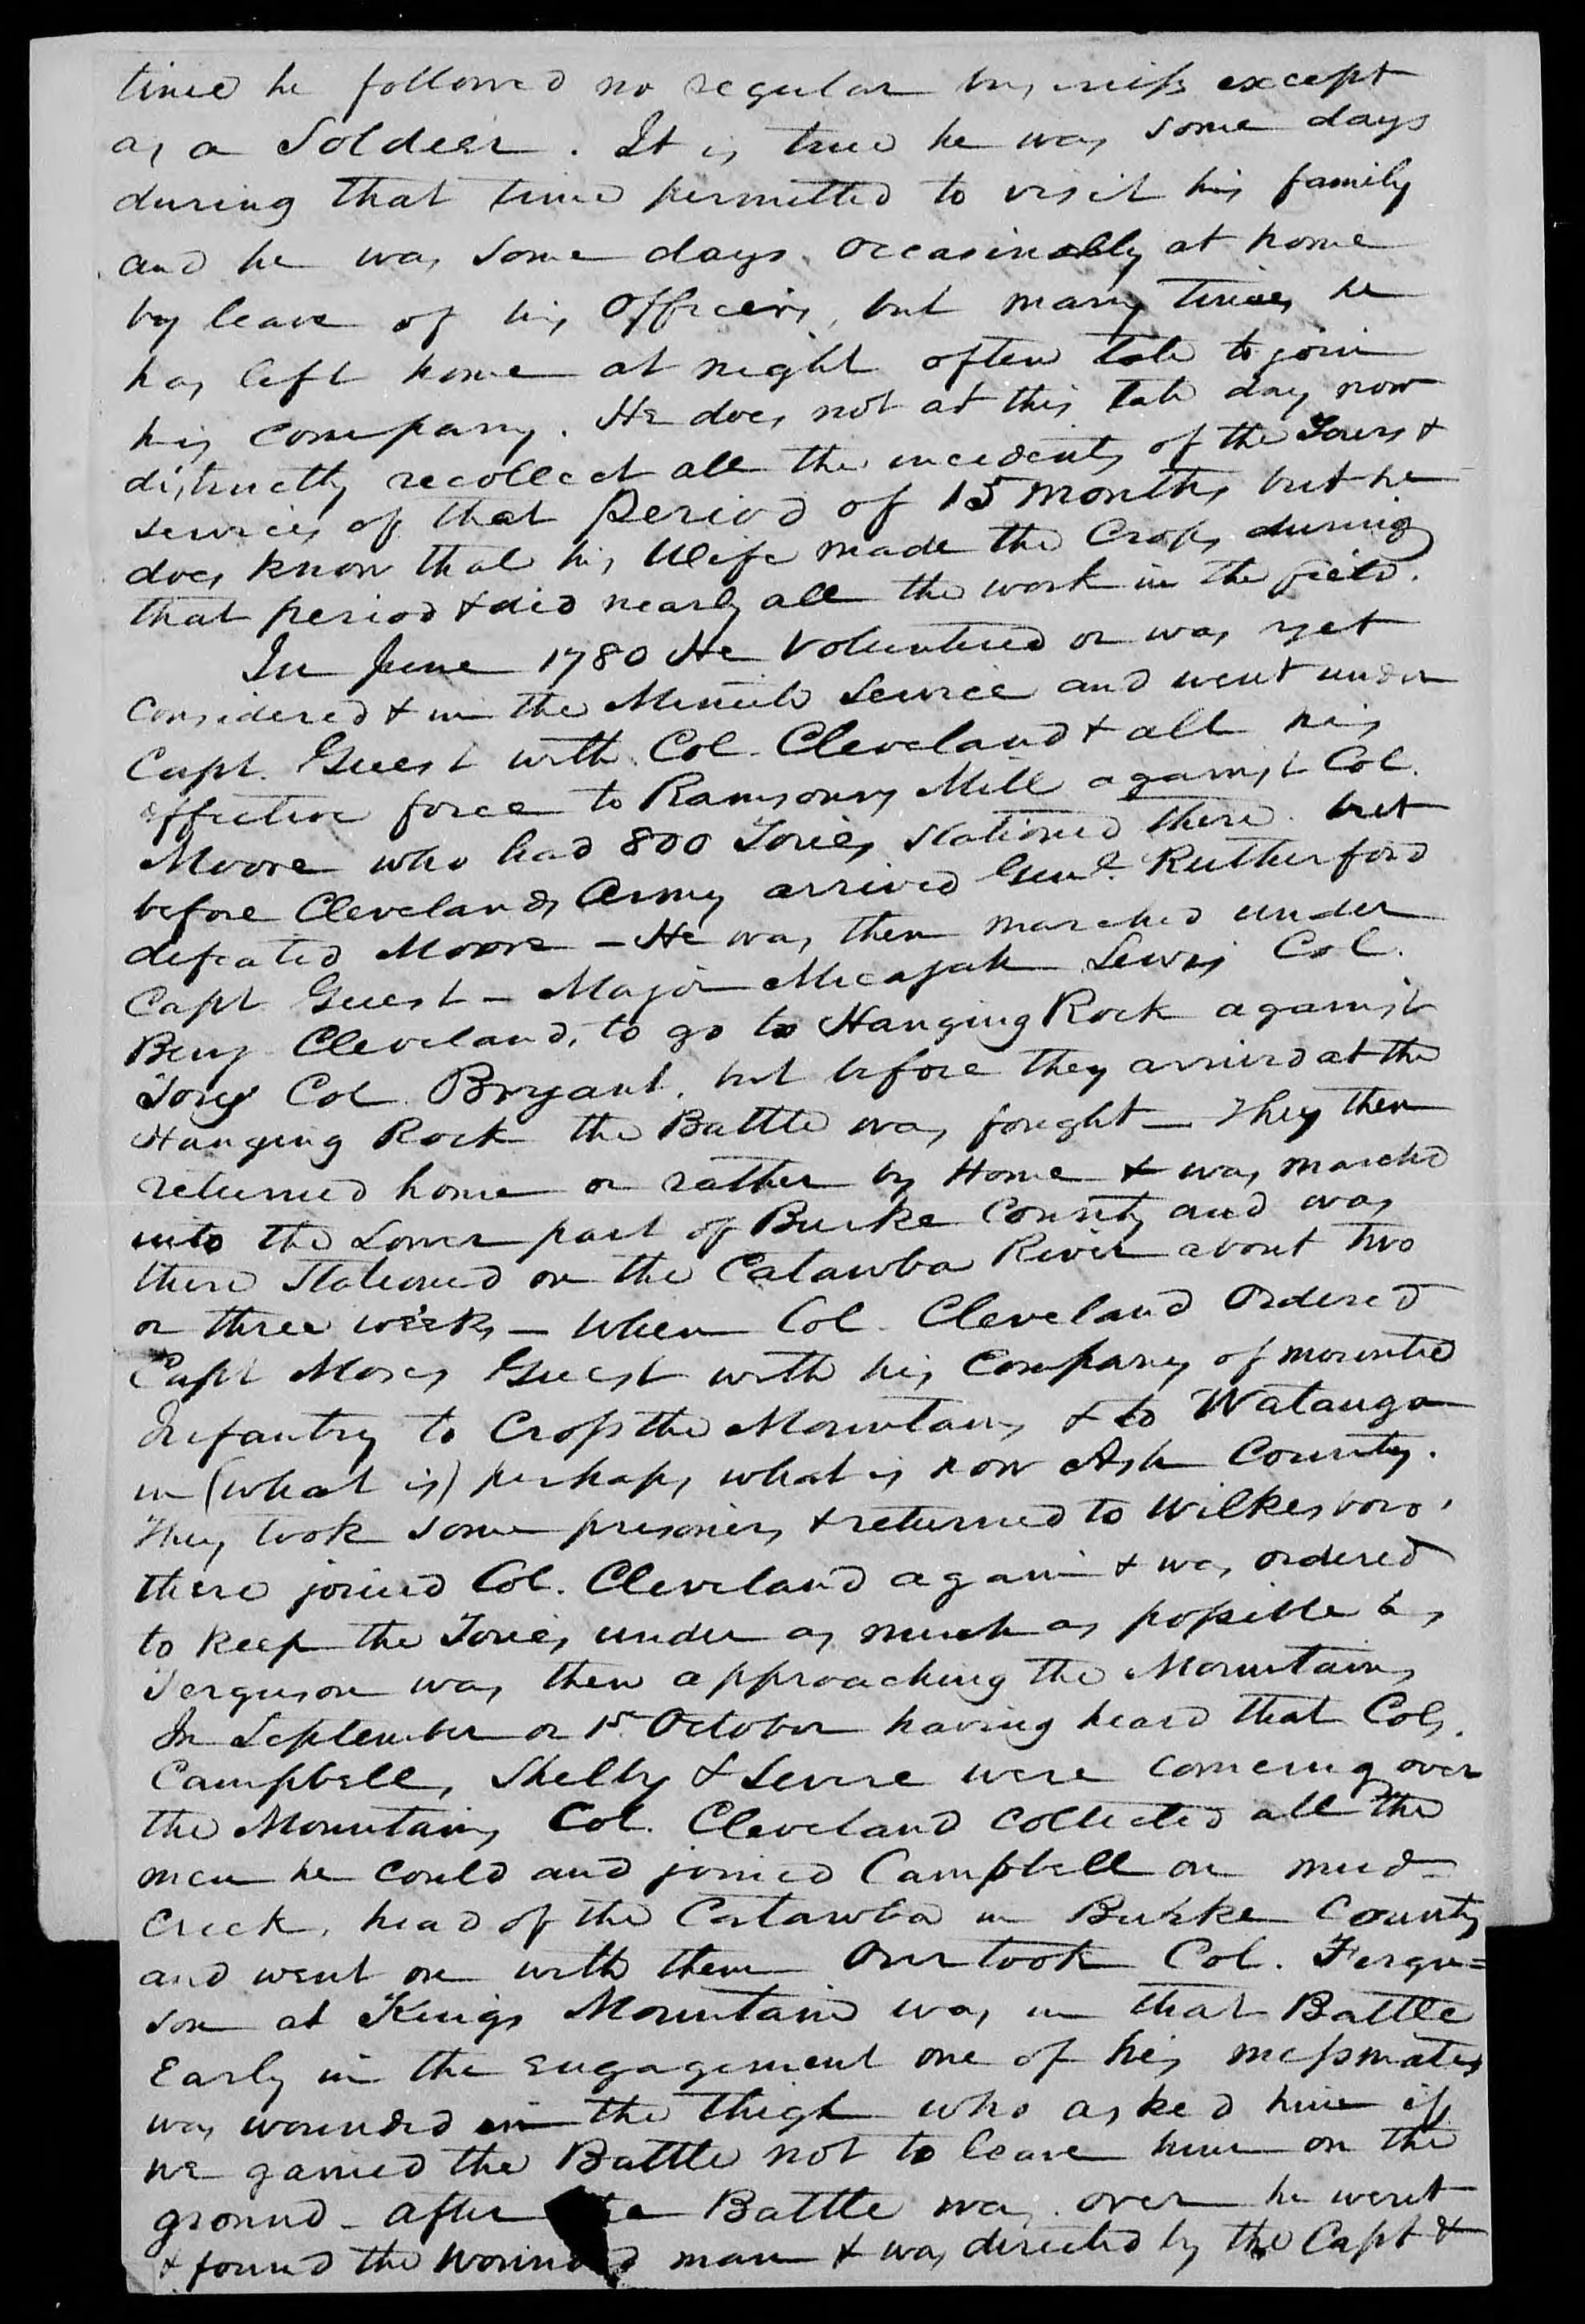 time he followed no regular business except
as a Soldeir. It is true he was some days
during that time permitted to visit his family
and he was some days occasinally at home
by leave of his Officers, but many times he
has left home at night often late to join
his Company. He does not at this late day now
distinctly recollect all the incidents of the Tours &
services of that period of 15 months but he
does know that his Wife made the Crops during
that period & did nearly all the work in the field.
In June 1780 He Volunteered or was yet
considered & in the Minute Service and went under
Capt. Guest with Col. Cleveland & all his
effective force to Ramsours Mill against Col.
Moore who had 800 Tories stationed there. but
before Clevelands Army arrived Genl. Rutherford
defeated Moore – He was then marched under
Capt Guest – Major Micajah Lewis Col.
Benj Cleveland, to go to Hanging Rock against
Tory Col Bryant. but before they arrived at the
Hanging Rock the Battle was fought – They then
returned home or rather by Home & was marched
into the Lower part of Burke County and was
there stationed on the Catawba River about two
or three weeks – When Col. Cleveland Ordered
Capt Moses Guest with his Company of mounted
Infantry to Cross the Mountains & to Watauga
in (what is) perhaps what is now Ash County.
They took some prisoners & returned to Wilkesboro'
there joined Col. Cleveland again & was ordered
to keep the Tories under as much as possible as
Ferguson was then approaching the Mountains
In September or 1st October having heard that Cols.
Campbell, Shelby & Severe were comeing over
the Mountains Col. Cleveland Collected all the
men he could and joined Campbell on mud
Creek, head of the Catawba in Burke County
and went on with them Overtook Col. Fergu=
son at Kings Mountain was in that Battle
Early in the engagement one of his messmates
was wounded in the thigh who asked him if
we gained the Battle not to leave him on the
ground – after Battle was over he went
& found the man & was directed by the Capt &